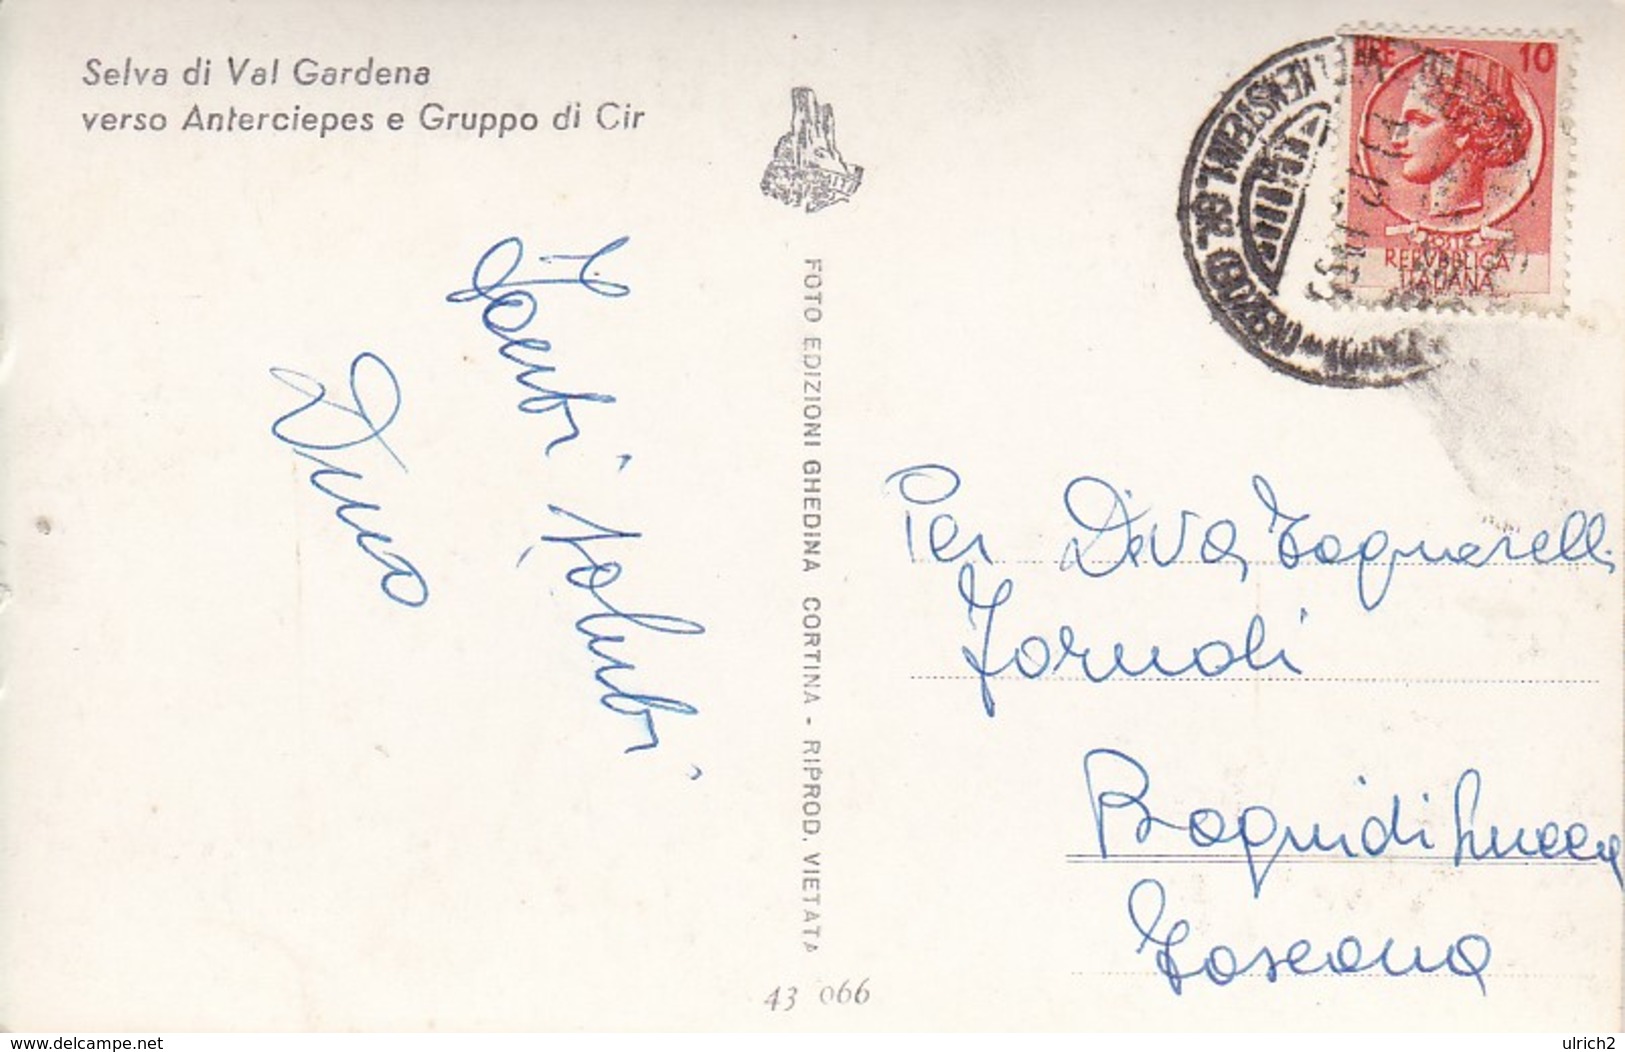 Selva di Val Gardena
verso Anterciepes e Gruppo di Cir
LIRE 10
POSTE
REPVBBLICA
ITALIANA
WELKENSTEIN I. GR. (BOLZANO)
FOTO EDIZIONI GHEDINA CORTINA - RIPROD. VIETATA
43 066
Saluti
Dino
Per Diva Tognarelli
Fornoli
Bagni di Lucca
Toscana
www.delcampe.net
ulrich2